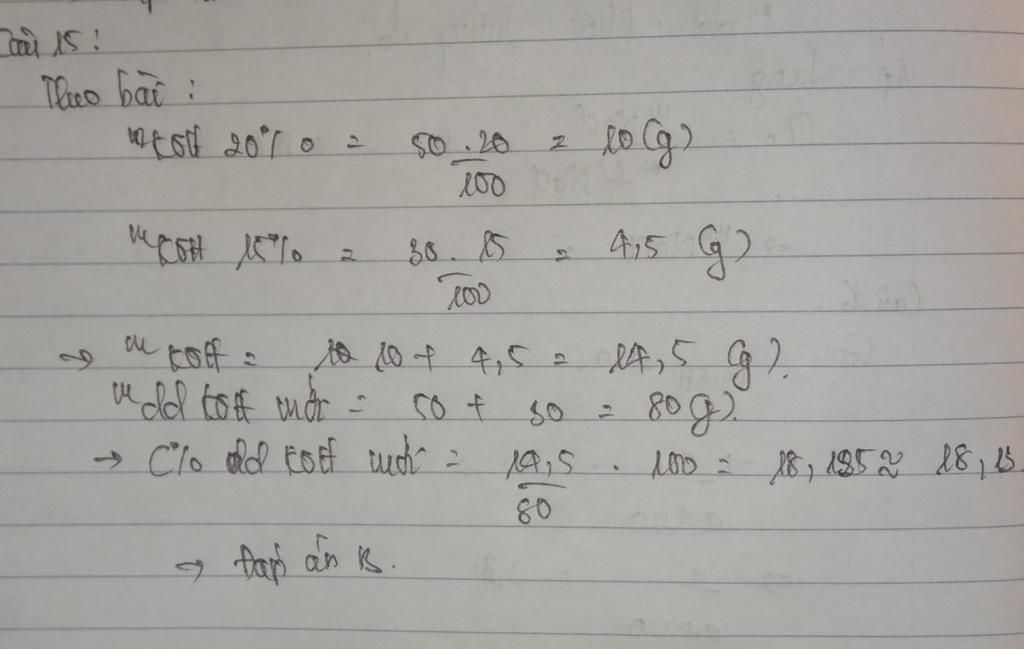 Câu 15:
Theo bài:
mKOH 20% = 50.20/100 = 10(g)
mKOH 15% = 30.15/100 = 4,5 (g)
→ mKOH = 10 + 4,5 = 14,5 (g).
mdd KOH mới = 50 + 30 = 80(g).
→ C% dd KOH mới = 14,5/80 . 100 = 18,125 ≈ 18,13
→ Đáp án B.